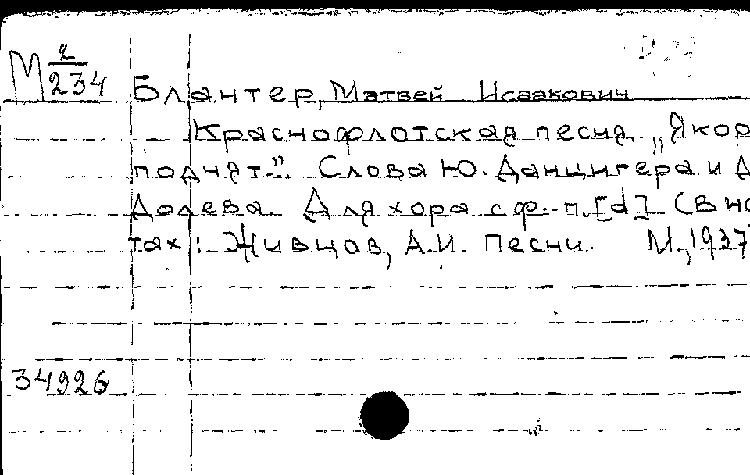 М 2/234
Блантер, Матвей Исаакович
Краснофлотская песня „Якор
поднят.". Слова Ю. Данцигера и Д
Долева. Для хора с ф.-п. [d] (В но
тах: Живцов, А.И. Песни. М., 1937
34926